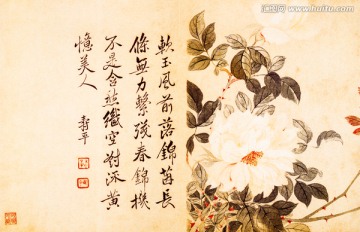 軟玉風前落錦茵長
條無力繫殘春錦機
不是含愁織空對流黃
憶美人
壽平
微图网
www.huitu.com